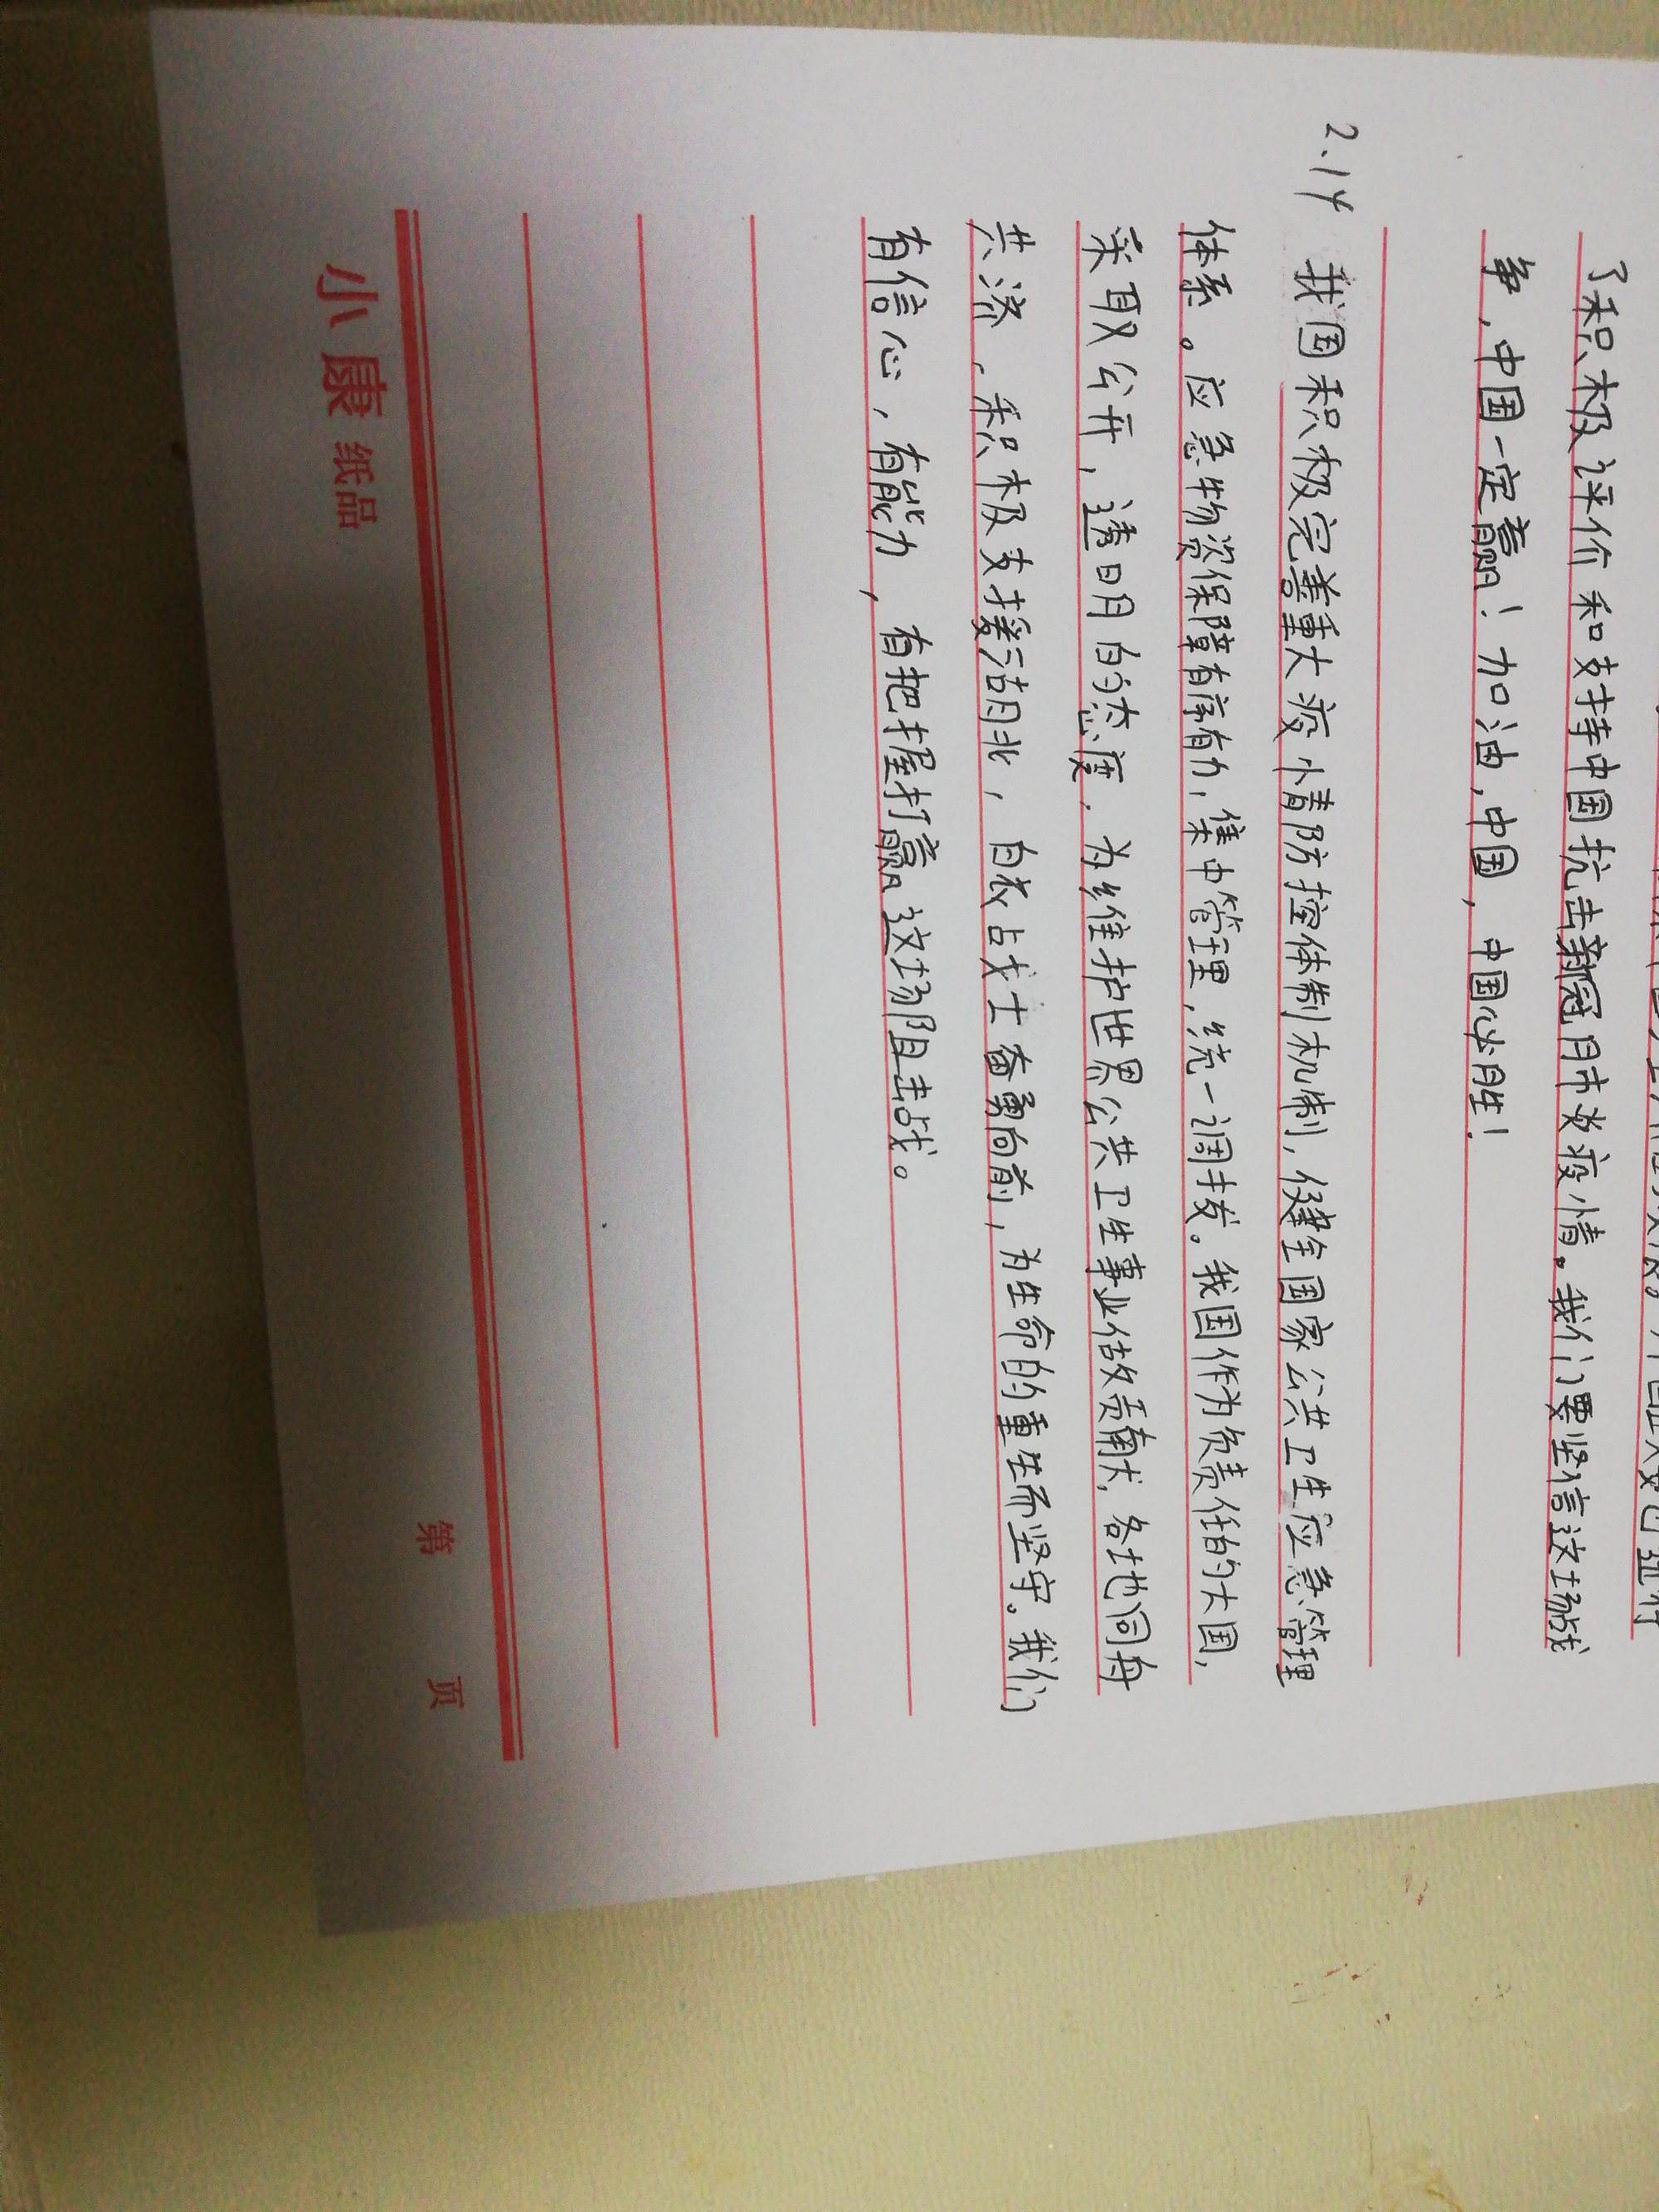 了积极评价和支持中国抗击新冠肺炎疫情。我们要坚信这场战
争,中国一定赢!加油,中国,中国必胜!
2.14 我国积极完善重大疫情防控体制机制,健全国家公共卫生应急管理
体系。应急物资保障有序有力,集中管理,统一调拨。我国作为负责任的大国,
采取公开,透明的态度,为维护世界公共卫生事业做贡献,各地同舟
共济,积极支援湖北,白衣战士奋勇向前,为生命的重生而坚守。我们
有信心,有能力,有把握打赢这场阻击战。
小康纸品 第 页